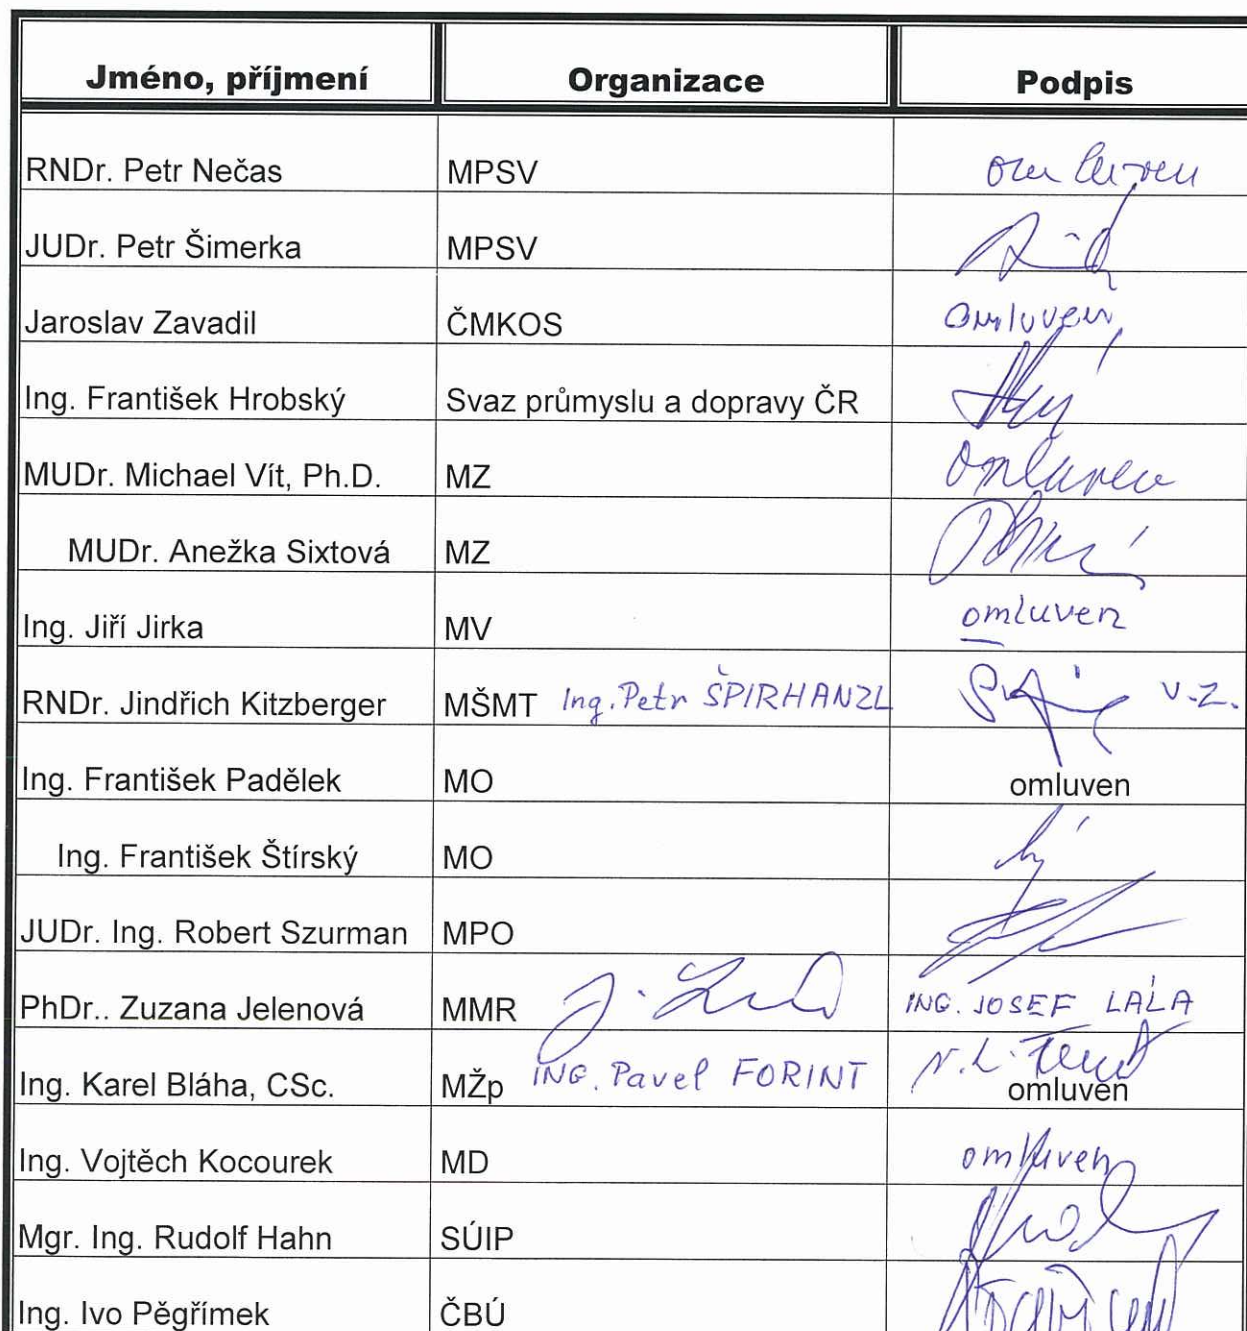 Jméno, příjmení Organizace Podpis
RNDr. Petr Nečas MPSV omluven
JUDr. Petr Šimerka MPSV
Jaroslav Zavadil ČMKOS omluven
Ing. František Hrobský Svaz průmyslu a dopravy ČR
MUDr. Michael Vít, Ph.D. MZ omluven
MUDr. Anežka Sixtová MZ
Ing. Jiří Jirka MV omluven
RNDr. Jindřich Kitzberger MŠMT Ing. Petr ŠPIRHANZL v.z.
Ing. František Padělek MO omluven
Ing. František Štírský MO
JUDr. Ing. Robert Szurman MPO
PhDr.. Zuzana Jelenová MMR ING. JOSEF LÁLA
Ing. Karel Bláha, CSc. MŽp ING. Pavel FORINT omluven
Ing. Vojtěch Kocourek MD omluven
Mgr. Ing. Rudolf Hahn SÚIP
Ing. Ivo Pěgřímek ČBÚ